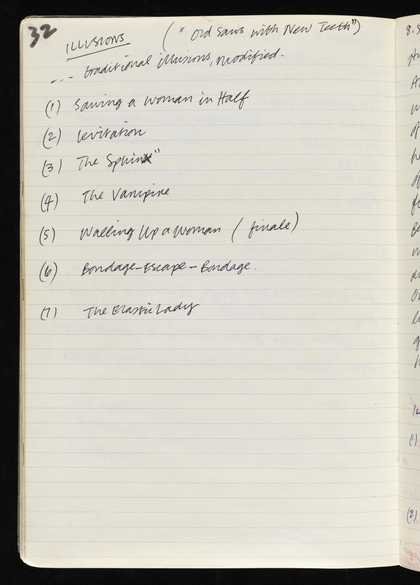 32
ILLUSIONS ("Old Saws with New Teeth")
... traditional illusions, modified.
(1) Sawing a Woman in Half
(2) Levitation
(3) The Sphinx"
(4) The Vampire
(5) Walling Up a Woman (finale)
(6) Bondage-Escape-Bondage.
(7) The Elastic Lady